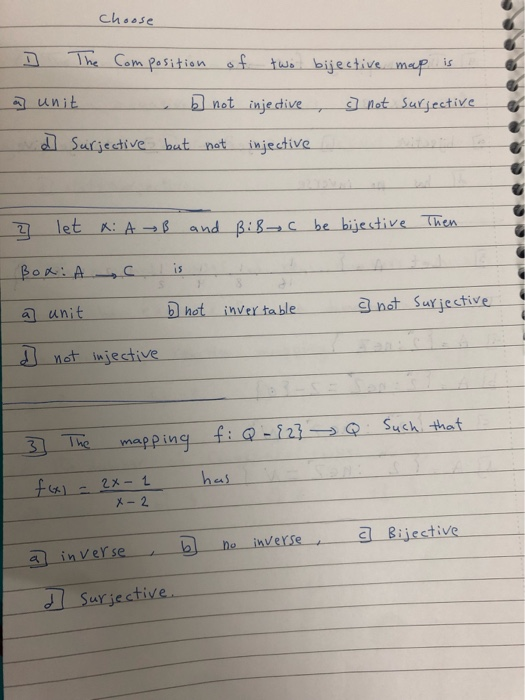 Choose
1] The Composition of two bijective map is
a] unit , b] not injective , c] not Surjective
d] Surjective but not injective
2] let α: A → B and β: B → C be bijective Then
β o α: A → C is
a] unit b] not invertable c] not Surjective
d] not injective
3] The mapping f: Q - {2} → Q Such that
f(x) = 2x - 1 / x - 2 has
a] inverse , b] no inverse , c] Bijective
d] Surjective.